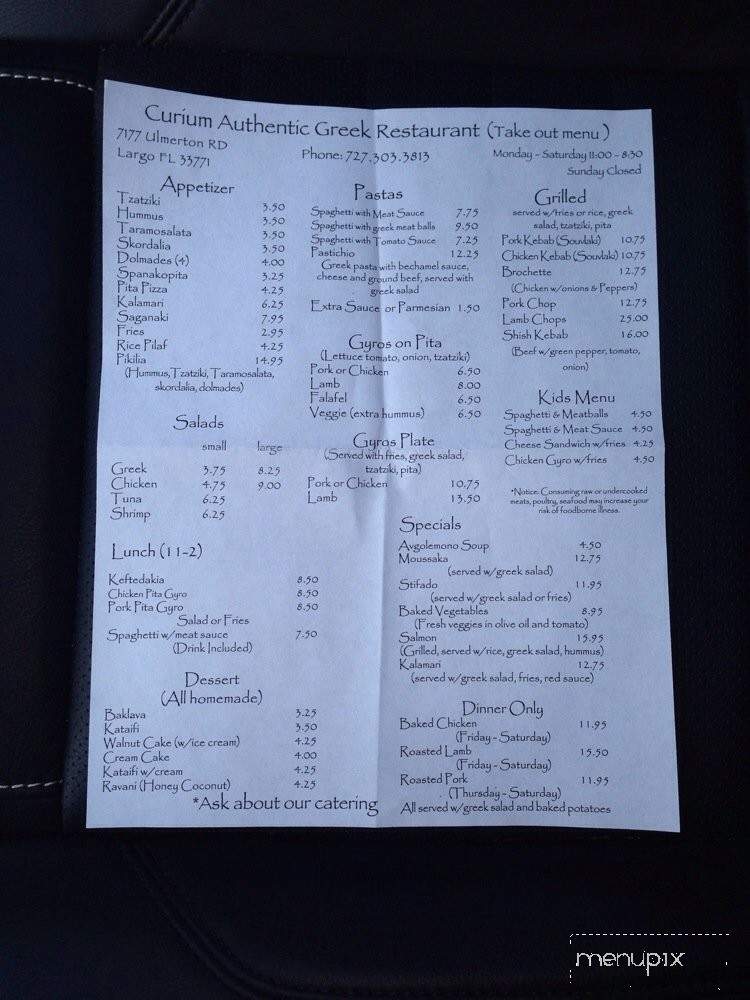 Curium Authentic Greek Restaurant (Take out menu)
7177 Ulmerton RD
Largo FL 33771
Phone: 727.303.3813
Monday - Saturday 11:00 - 8:30
Sunday Closed
Appetizer
Tzatziki 3.50
Hummus 3.50
Taramosalata 3.50
Skordalia 3.50
Dolmades (4) 4.00
Spanakopita 3.25
Pita Pizza 4.25
Kalamari 6.25
Saganaki 7.95
Fries 2.95
Rice Pilaf 4.25
Pikilia 14.95
(Hummus, Tzatziki, Taramosalata,
skordalia, dolmades)
Salads
small large
Greek 3.75 8.25
Chicken 4.75 9.00
Tuna 6.25
Shrimp 6.25
Lunch (11-2)
Keftedakia 8.50
Chicken Pita Gyro 8.50
Pork Pita Gyro 8.50
Salad or Fries
Spaghetti w/meat sauce 7.50
(Drink Included)
Dessert
(All homemade)
Baklava 3.25
Kataifi 3.50
Walnut Cake (w/ice cream) 4.25
Cream Cake 4.00
Kataifi w/cream 4.25
Ravani (Honey Coconut) 4.25
*Ask about our catering
Pastas
Spaghetti with Meat Sauce 7.75
Spaghetti with greek meat balls 9.50
Spaghetti with Tomato Sauce 7.25
Pastichio 12.25
Greek pasta with bechamel sauce,
cheese and ground beef, served with
greek salad
Extra Sauce or Parmesian 1.50
Gyros on Pita
(Lettuce tomato, onion, tzatziki)
Pork or Chicken 6.50
Lamb 8.00
Falafel 6.50
Veggie (extra hummus) 6.50
Gyros Plate
(Served with fries, greek salad,
tzatziki, pita)
Pork or Chicken 10.75
Lamb 13.50
Grilled
served w/fries or rice, greek
salad, tzatziki, pita
Pork Kebab (Souvlaki) 10.75
Chicken Kebab (Souvlaki) 10.75
Brochette 12.75
(Chicken w/onions & Peppers)
Pork Chop 12.75
Lamb Chops 25.00
Shish Kebab 16.00
(Beef w/green pepper, tomato,
onion)
Kids Menu
Spaghetti & Meatballs 4.50
Spaghetti & Meat Sauce 4.50
Cheese Sandwich w/fries 4.25
Chicken Gyro w/fries 4.50
*Notice: Consuming raw or undercooked
meats, poultry, seafood may increase your
risk of foodborne illness.
Specials
Avgolemono Soup 4.50
Moussaka 12.75
(served w/greek salad)
Stifado 11.95
(served w/greek salad or fries)
Baked Vegetables 8.95
(Fresh veggies in olive oil and tomato)
Salmon 15.95
(Grilled, served w/rice, greek salad, hummus)
Kalamari 12.75
(served w/greek salad, fries, red sauce)
Dinner Only
Baked Chicken 11.95
(Friday - Saturday)
Roasted Lamb 15.50
(Friday - Saturday)
Roasted Pork 11.95
(Thursday - Saturday)
All served w/greek salad and baked potatoes
menupix